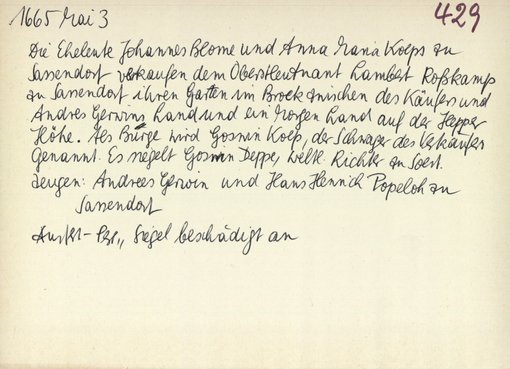 1665 Mai 3
429
Die Eheleute Johannes Blome und Anna Maria Koeps zu
Sassendorf verkaufen dem Oberstleutnant Lambert Roßkamp
zu Sassendorf ihren Garten im Brock zwischen des Käufers und
Andres Gerwins Land und ein Morgen Land auf der Hepper
Höhe. Als Bürge wird Goswin Koep, der Schwager des Verkäufers
genannt. Es siegelt Goswin Deppe, weltl. Richter zu Soest.
Zeugen: Andrees Gerwin und Hans Henrich Popeloh zu
Sassendorf
Ausf.- Siegel beschädigt an